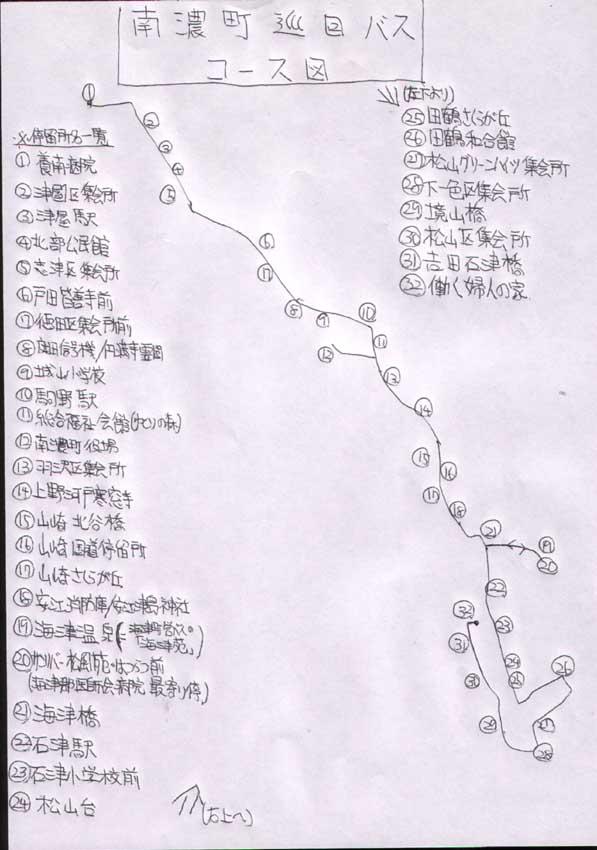 南濃町巡回バス
コース図
※停留所名一覧
①養南病院
②津屋区集会所
③津屋駅
④北部公民館
⑤志津区集会所
⑥戸田皆善寺前
⑦徳田区集会所前
⑧庭田信号機/円満寺霊園
⑨城山小学校
⑩駒野駅
⑪総合福祉会館(ゆとりの森)
⑫南濃町役場
⑬羽沢区集会所
⑭上野河戸寒窓寺
⑮山崎北谷橋
⑯山崎国道停留所
⑰山崎さくらが丘
⑱安江消防庫/安江津島神社
⑲海津温泉(海津苑。)
⑳サンリバー松風苑・はつらつ前
(海津郡医師会病院最寄り停。)
㉑海津橋
㉒石津駅
㉓石津小学校前
㉔松山台
(右上へ)
(左下より)
㉕田鶴さくらが丘
㉖田鶴和合館
㉗松山グリーンハイツ集会所
㉘下一色区集会所
㉙境山橋
㉚松山区集会所
㉛吉田石津橋
㉜働く婦人の家
①
②
③
④
⑤
⑥
⑰
⑧
⑨
⑩
⑪
⑫
⑬
⑭
⑮
⑯
⑰
⑱
㉑
⑲
⑳
㉒
㉓
㉔
㉕
㉖
㉗
㉘
㉙
㉚
㉛
㉜